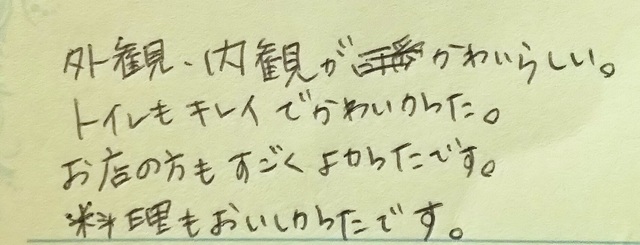 外観、内観がかわいらしい。
トイレもキレイでかわいかった。
お店の方もすごくよかったです。
料理もおいしかったです。